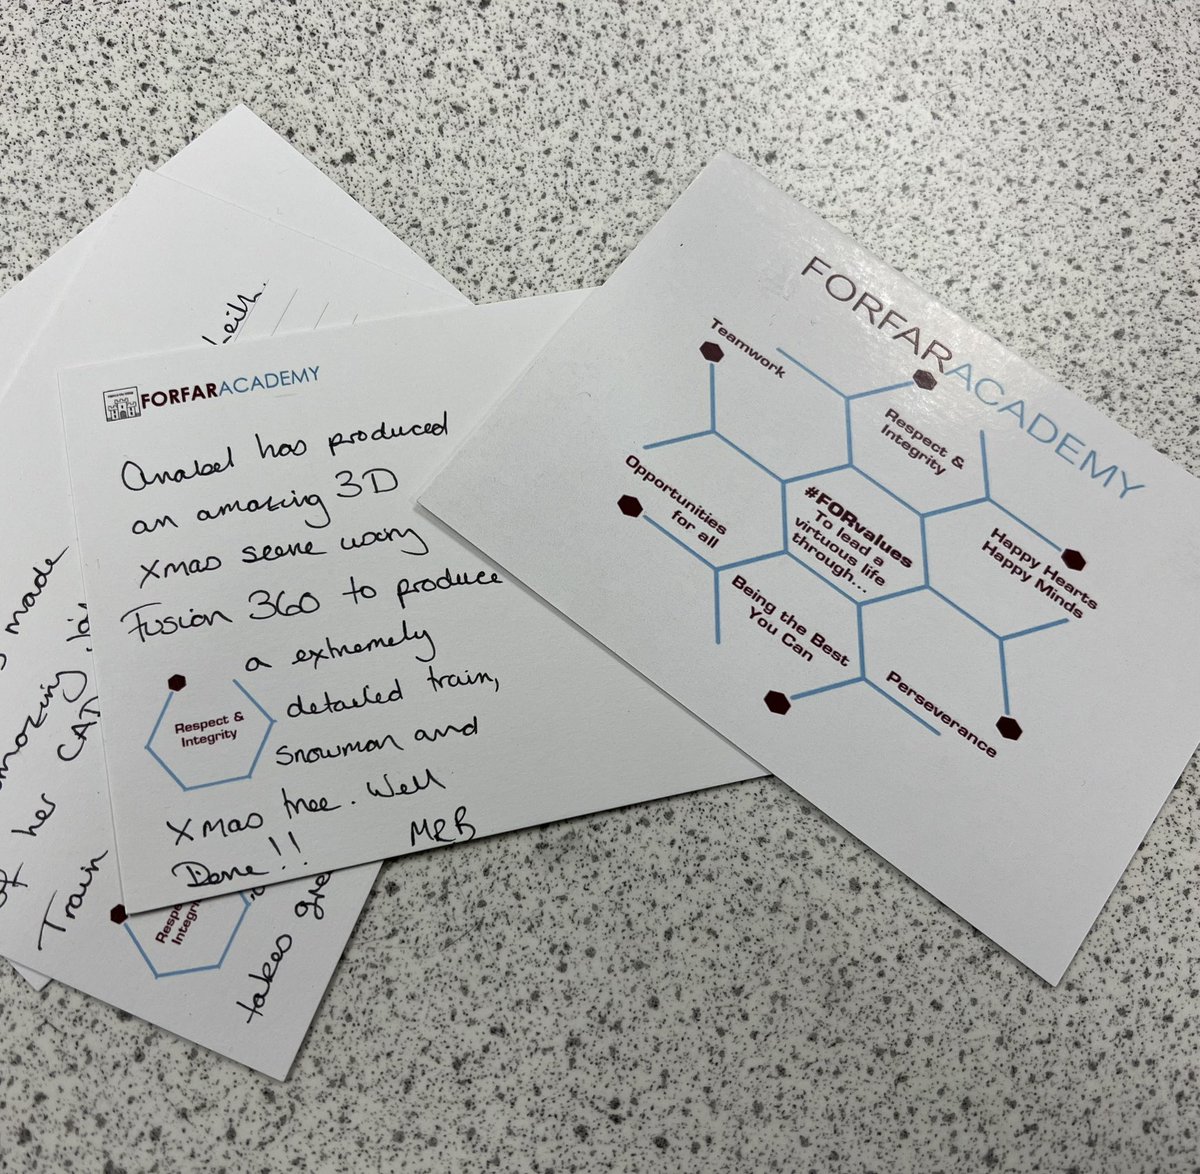 Leith.
FORFARACADEMY
Anabel has produced
an amazing 3D
Xmas scene using
Fusion 360 to produce
a extremely
detailed train,
Snowman and
Xmas tree. Well
Done!!
MRB
Respect &
Integrity
made
amazing
of her CAD
Train
takes
FORFARACADEMY
Teamwork
Respect &
Integrity
Opportunities
for all
#FORvalues
To lead a
virtuous life
through...
Happy Hearts
Happy Minds
Being the Best
You Can
Perseverance